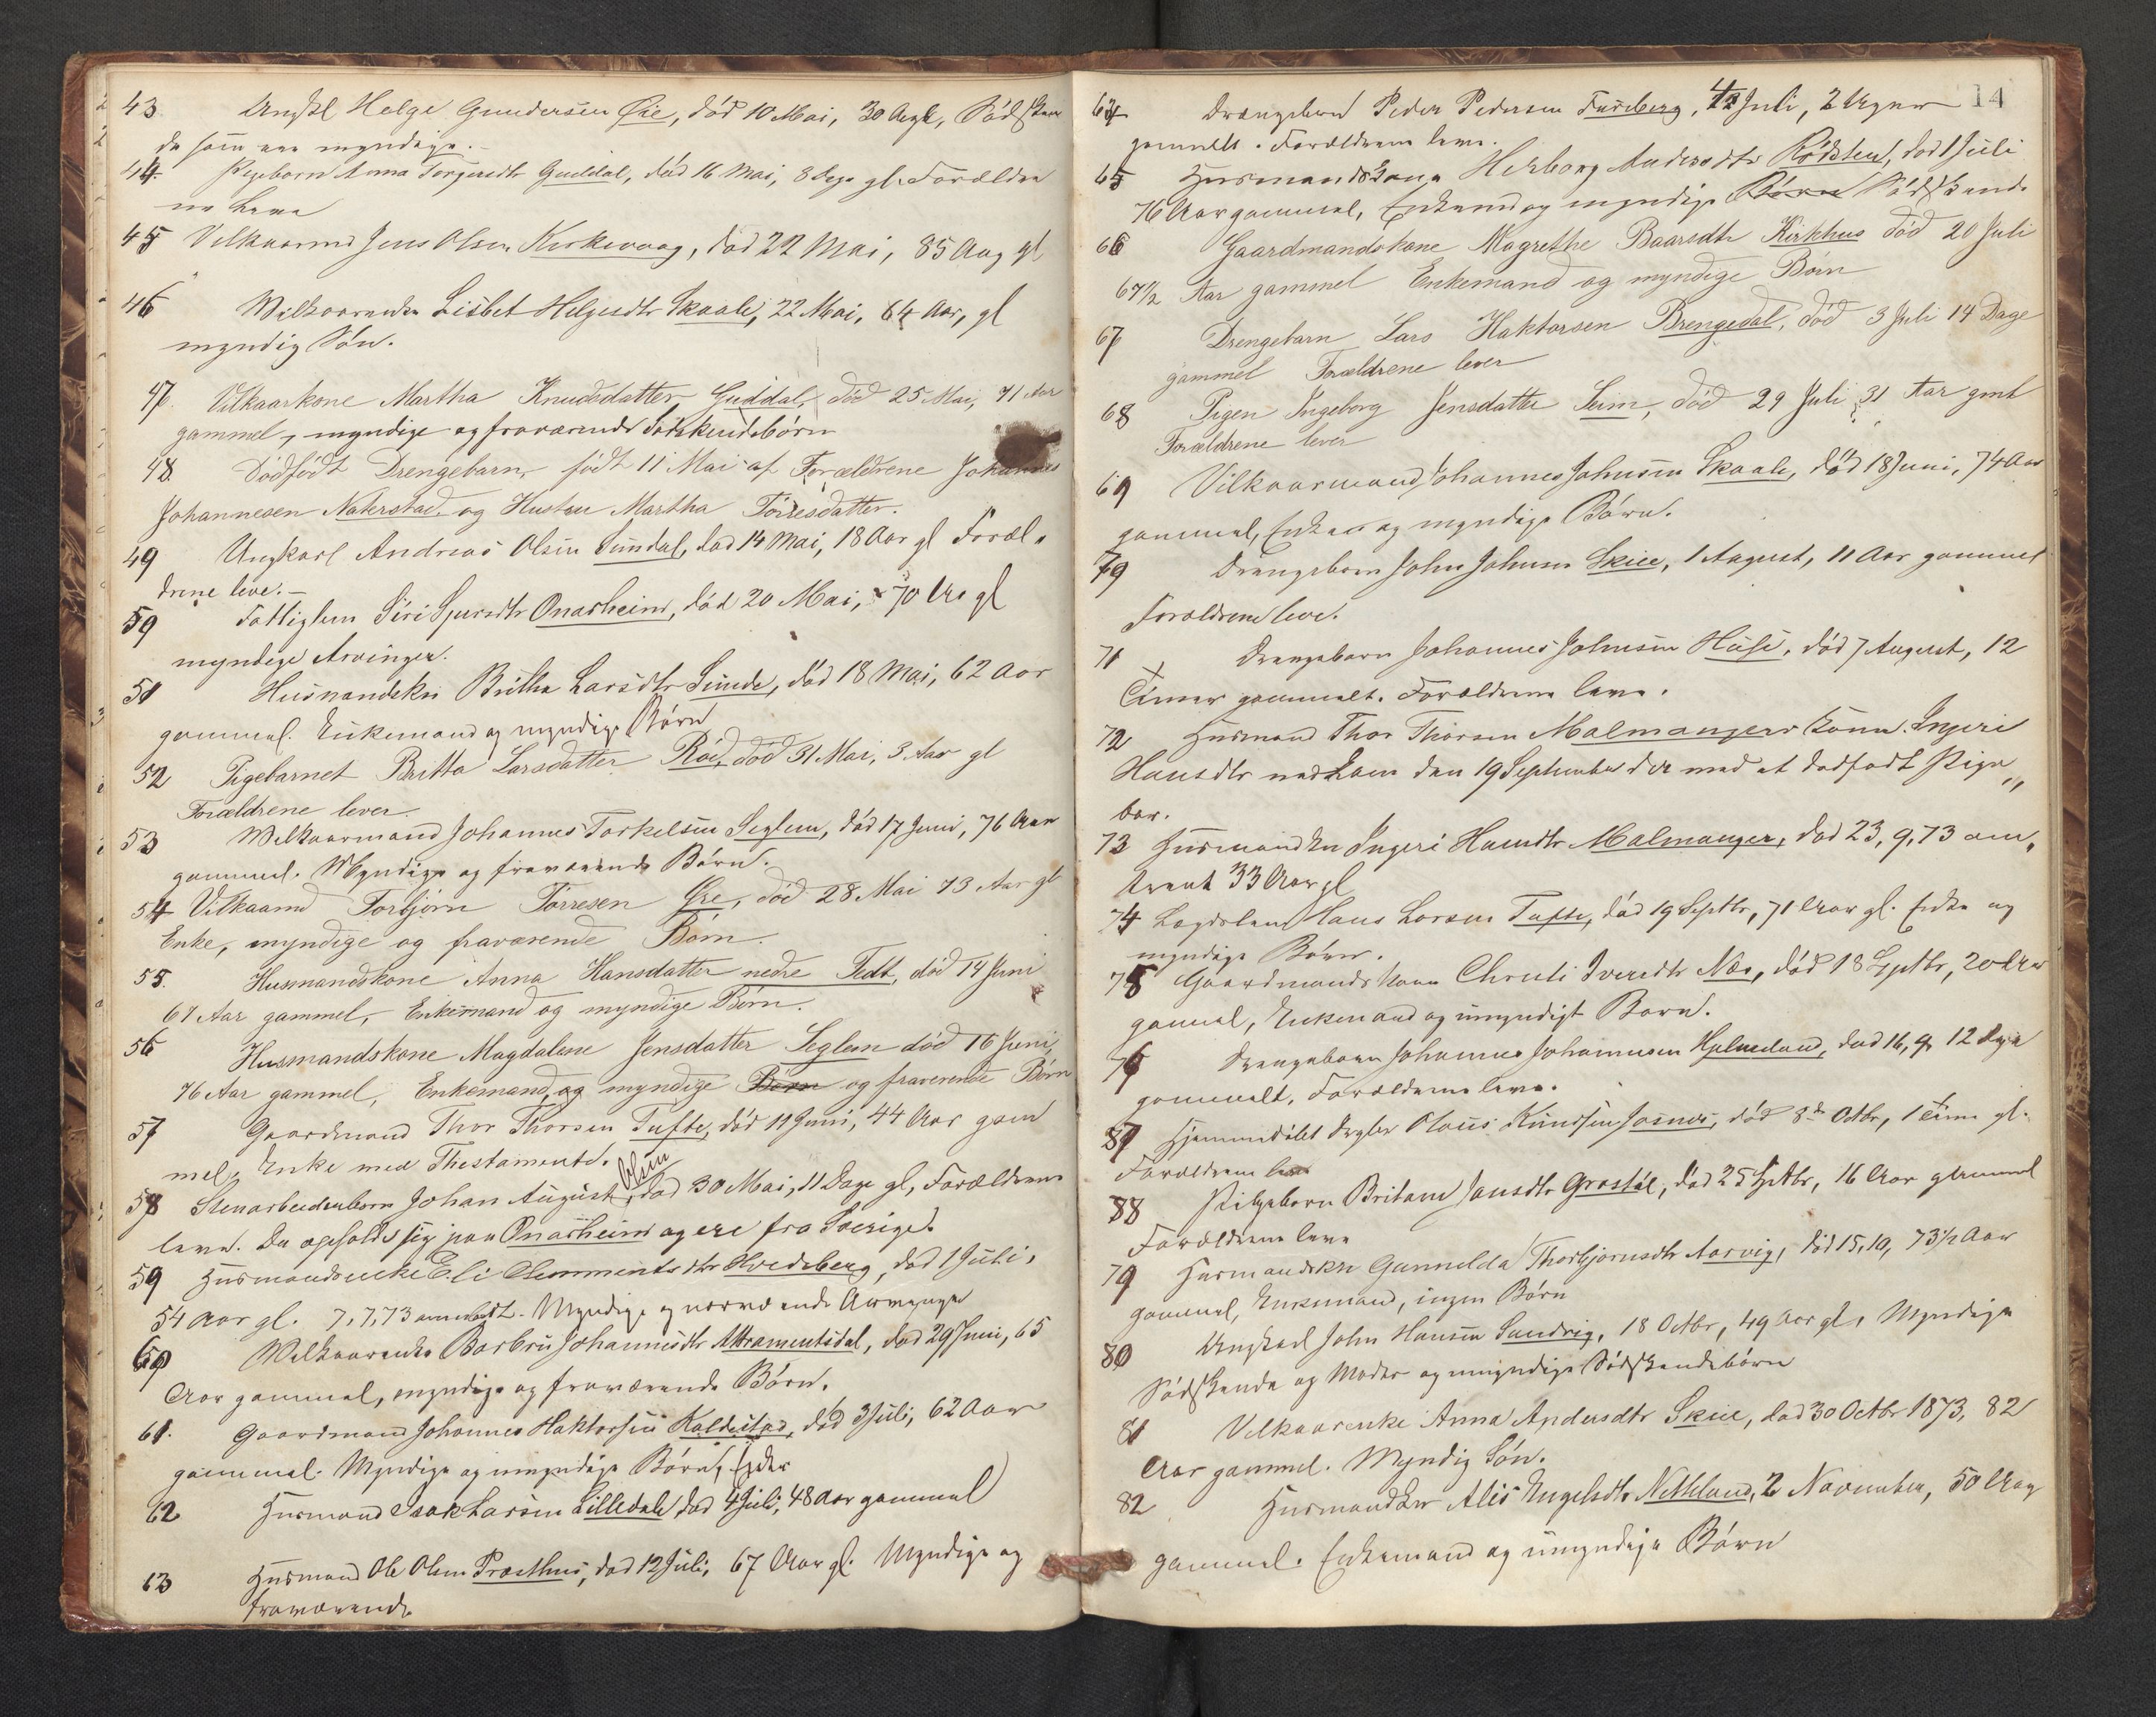 43 Ungkl Helge Gundersen Øie, död 10 Mai, 30 Aar gl, Södsken
de som ere myndige.
44. Pigebarn Anna Torgersdtr Guddal, död 16 Mai, 8 Dage gl. Forældre
ne leve
45 Vilkaarmd Jens Olsen Kirkevaag, död 22 Mai, 85 Aar gl
46 Vilkaarenke Lisbet Helgesdtr Skaale, 22 Mai, 64 Aar, gl
myndig Sön.
47. Vilkaarkone Martha Knudsdatter Guddal, död 25 Mai, 71 Aar
gammel, myndige og fraværende Södskendebörn
48. Dödfödt Drengebarn, födt 11 Mai af Forældrene Johannes
Johannesen Naterstad og Hustru Martha Törresdatter.
49 Ungkarl Andreas Olsen Sundal, död 14 Mai, 18 Aar gl Foræl-
drene leve.
50 Fattiglem Siri Sjursdtr Onarheim, död 20 Mai, 70 Aar gl
myndige Arvinger.
51 Husmandskn Britha Larsdtr Sunde, död 18 Mai, 62 Aar
gammel. Enkemand og myndige Börn
52 Pigebarnet Britta Larsdatter Röd, död 31 Mai, 3 Aar gl
Forældrene lever.
53 Vilkaarmand Johannes Torkelsen Seglem, död 17 Juni, 76 Aar
gammel. Myndige og fraværende Börn.
54 Vilkaarmd Torbjörn Törresen Øre, död 28 Mai 73 Aar gl
Enke, myndige og fraværende Börn.
55. Husmandskone Anna Hansdatter nedre Tedt, död 14 Juni
67 Aar gammel, Enkemand og myndige Börn.
56 Husmandskone Magdalene Jensdatter Seglem död 16 Juni,
76 Aar gammel, Enkemand, og myndige Börn og fraverende Börn
57 Gaardmand Thor Thorsen Tufte, död 11 Juni, 44 Aar gam
mel, Enke med Thestamente.
58 Stenarbeiderbarn Johan August Olsen, död 30 Mai, 11 Dage gl, Forældrene
leve. De opholde sig paa Onarheim og ere fra Sverige.
59 Husmandsenke Eli Clemmentsdtr Hvedeberg, död 1 Juli,
54 Aar gl. 7,7,73 anmeldt. Myndige og nærværende Arvinger
60 Vilkaarenke Barbru Johannesdtr Miramentsdal, död 29 Juni, 65
Aar gammel, myndige og fraværende Börn.
61. Gaardmand Johannes Haktorsen Kaldestad, död 3 Juli, 62 Aar
gammel. Myndige og umyndige Börn, Enke
62 Husmand Isak Larsen Lilledale, död 4 Juli, 48 Aar gammel
63 Husmand Ole Olsen Præsthus, död 12 Juli, 67 Aar gl. Myndige og
fraværende
14
64 Drengebarn Peder Pedersen Fureberg, 4 Juli, 2 Uger
gammelt. Forældrene leve.
65 Husmandskone Herborg Andersdtr Rödsten, död 1 Juli
76 Aar gammel, Enkemd og myndige Börn Södskende
66 Gaardmandskone Magrethe Baarsdtr Kirkhus död 20 Juli
67 1/2 Aar gammel Enkemand og myndige Börn
67 Drengebarn Lars Haktorsen Brengedal, död 3 Juli 14 Dage
gammel Forældrene lever
68 Pigen Ingeborg Jensdatter Seim, död 29 Juli 31 Aar gmt
Forældrene lever
69 Vilkaarmand Johannes Johnsen Skaale, död 18 Juni, 74 Aar
gammel, Enke og myndige Börn.
70 Drengebarn John Johnsen Skeie, 1 August, 11 Aar gammel
Forældrene leve.
71 Drengebarn Johannes Johnsen Huse, död 7 August, 12
Timer gammelt. Forældrene leve.
72 Husmand Thor Thorsen Malmangers Kone Ingeri
Hansdtr nedkom den 19 September der med et dödfödt Pige„
bar.
73 Husmandkn Ingeri Hansdtr Malmanger, död 23,9,73 om„
trent 33 Aar gl
74 Lægdslem Hans Larsen Tufte, död 19 Septbr, 71 Aar gl. Enke og
myndige Börn.
75 Gaardmandskone Christi Iversdtr Næs, död 18 Septbr, 20 Aar
gammel, Enkemand og umyndigt Barn.
76 Drengebarn Johannes Johannesen Hjelmeland, död 16,9, 12 Dage
gammelt, Forældrene leve.
87 Hjemmedöbt Olaus Knudsen Josnes, död 8de Octbr, 1 Time gl.
Forældrene leve
88 Pigebarn Britane Jansdtr Grostöl, död 25 Septbr, 16 Aar gammel
Forældrene leve
79 Husmandskn Gunnelda Thorbjornsdtr Aarvig, död 15,10, 73 1/2 Aar
gammel, Enkemand, ingen Börn
80 Ungkarl John Hansen Sandvig, 18 Octbr, 49 Aar gl, Myndige
Södskende og Moder og umyndige Södskendebörn
81 Velkaarenke Anna Andersdtr Skeie, död 30 Octbr 1873, 82
Aar gammel. Myndig Sön.
82 Husmandkn Alis Engelsdtr Nethland, 2 November, 50 Aar
gammel. Enkemand og umyndige Börn